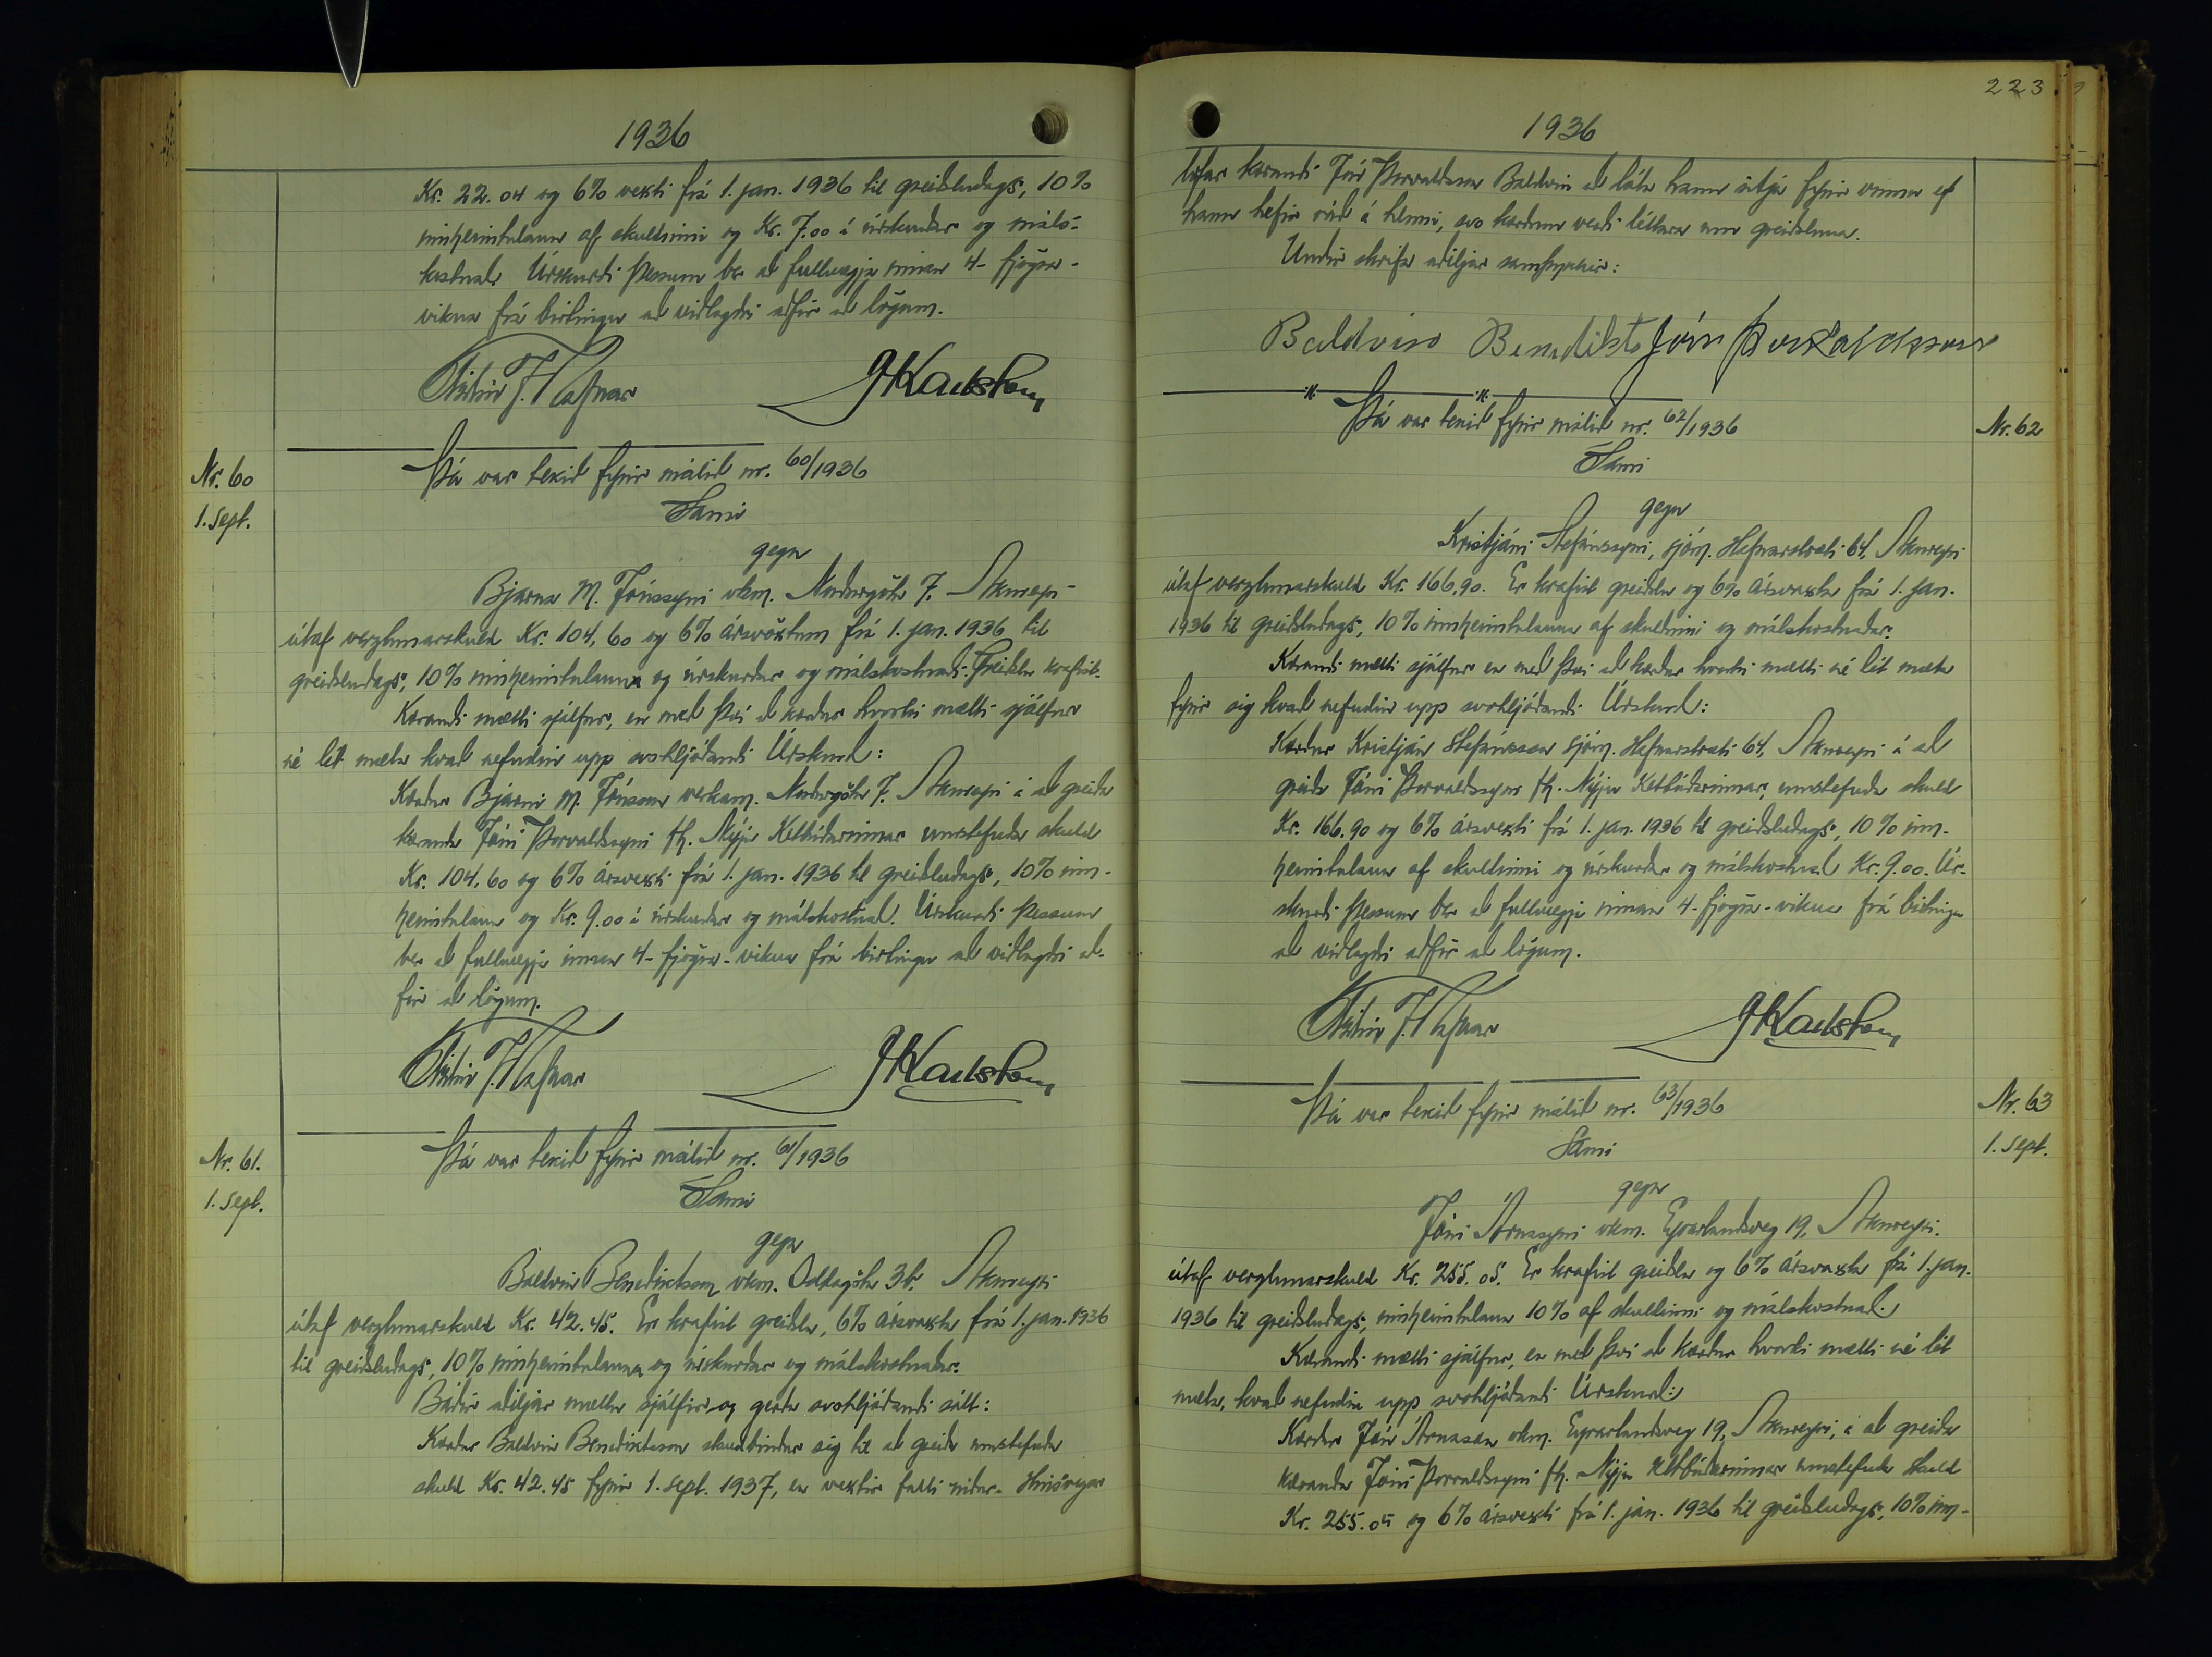 1936
Kr. 22.04 og 6% vexti frá 1. jan. 1936 til greiðsludags, 10%
innheimtulaun af skuldinni og Kr. 7.00 í úrskurðar og máls-
kostnað. Úrskurði þessum ber að fullnægja innan 4- fjögra-
vikna frá birtingu að viðlagðri aðför að lögum.
J Karlsson
Nr. 60
1. Sept.
Þá var tekið fyrir málið nr. 60/1936
Sami
gegn
Bjarna M. Jónssyni vkm. Norðurgötu 7. Akureyri
útaf verzlunarskuld Kr. 104,60 og 6% ársvöxtum frá 1. jan. 1936 til
greiðsludags, 10% innheimtulauna og úrskurðar og málskostnaði. Greiðslu krafist.
Kærandi mætti sjálfur, en með því að kærður hvorki mætti sjálfur
né lét mæta kvað nefndin upp svohljóðandi Úrskurð:
Kærður Bjarni M. Jónsson verkam. Norðurgötu 7. Akureyri á að greiða
kæranda Jóni Þorvaldssyni fh. Nýju Kjötbúðarinnar umstefnda skuld
Kr. 104,60 og 6% ársvexti frá 1. jan. 1936 til greiðsludags, 10% inn-
heimtulaun og Kr. 9.00 í úrskurðar og málskostnað. Úrskurði þessum
ber að fullnægja innan 4- fjögra- vikna frá birtingu að viðlagðri að-
för að lögum.
J Karlsson
Nr. 61.
1. Sept.
Þá var tekið fyrir málið nr. 61/1936
Sami
gegn
Baldvin Benediktssyni vkm. Oddagötu 3b. Akureyri
útaf verzlunarskuld Kr. 42.45. Er krafist greiðslu, 6% ársvaxta frá 1. jan. 1936
til greiðsludags, 10% innheimtulauna og úrskurðar og málskostnaðar.
Báðir aðiljar mættu sjálfir og gerðu svohljóðandi sátt:
Kærður Baldvin Benediktsson skuldbindur sig til að greiða umstefnda
skuld Kr. 42.45 fyrir 1. sept. 1937, en vextir falli niður. Hinsvegar
223
1936
lofar kærandi Jón Þorvaldsson Baldvin að láta hann sitja fyrir vinnu ef
hann hefir ráð á henni, svo kærðum verði léttara um greiðsluna.
Undir skrifa aðiljar samþykkir:
Baldvin Benedikts Jón Þorvaldsson
Nr. 62
Þá var tekið fyrir málið nr. 62/1936
Sami
gegn
Kristjáni Stefánssyni, sjóm. Hafnarstræti 64, Akureyri
útaf verzlunarskuld Kr. 166,90. Er krafist greiðslu og 6% ársvaxta frá 1. jan.
1936 til greiðsludags, 10% innheimtulauna af skuldinni og málskostnaðar.
Kærandi mætti sjálfur en með því að kærður hvorki mætti né lét mæta
fyrir sig kvað nefndin upp svohljóðandi Úrskurð:
Kærður Kristján Stefánsson sjóm. Hafnarstræti 64, Akureyri á að
greiða Jóni Þorvaldssyni fh. Nýju Kjötbúðarinnar, umstefnda skuld
Kr. 166.90 og 6% ársvexti frá 1. jan. 1936 til greiðsludags, 10% inn-
heimtulaun af skuldinni og úrskurðar og málskostnað Kr. 9.00. Úr-
skurði þessum ber að fullnægja innan 4- fjögra- vikna frá birtingu
að viðlagðri aðför að lögum.
J Karlsson
Nr. 63
1. Sept.
Þá var tekið fyrir málið nr. 63/1936
Sami
gegn
Jóni Árnasyni vkm. Eyrarlandsveg 19, Akureyri.
útaf verzlunarskuld Kr. 255.05. Er krafist greiðslu og 6% ársvaxta frá 1. jan.
1936 til greiðsludags, innheimtulaun 10% af skuldinni og málskostnað.
Kærandi mætti sjálfur, en með því að kærður hvorki mætti né lét
mæta, kvað nefndin upp svohljóðandi Úrskurð:
Kærður Jón Árnason vkm. Eyrarlandsveg 19, Akureyri, á að greiða
kæranda Jóni Þorvaldssyni fh. Nýju Kjötbúðarinnar umstefnda skuld
Kr. 255.05 og 6% ársvexti frá 1. jan. 1936 til greiðsludags, 10% inn-